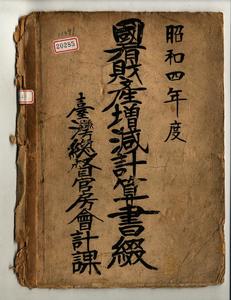 昭和四年度
國有財産増減計算書綴
臺灣總督官房會計課
20285